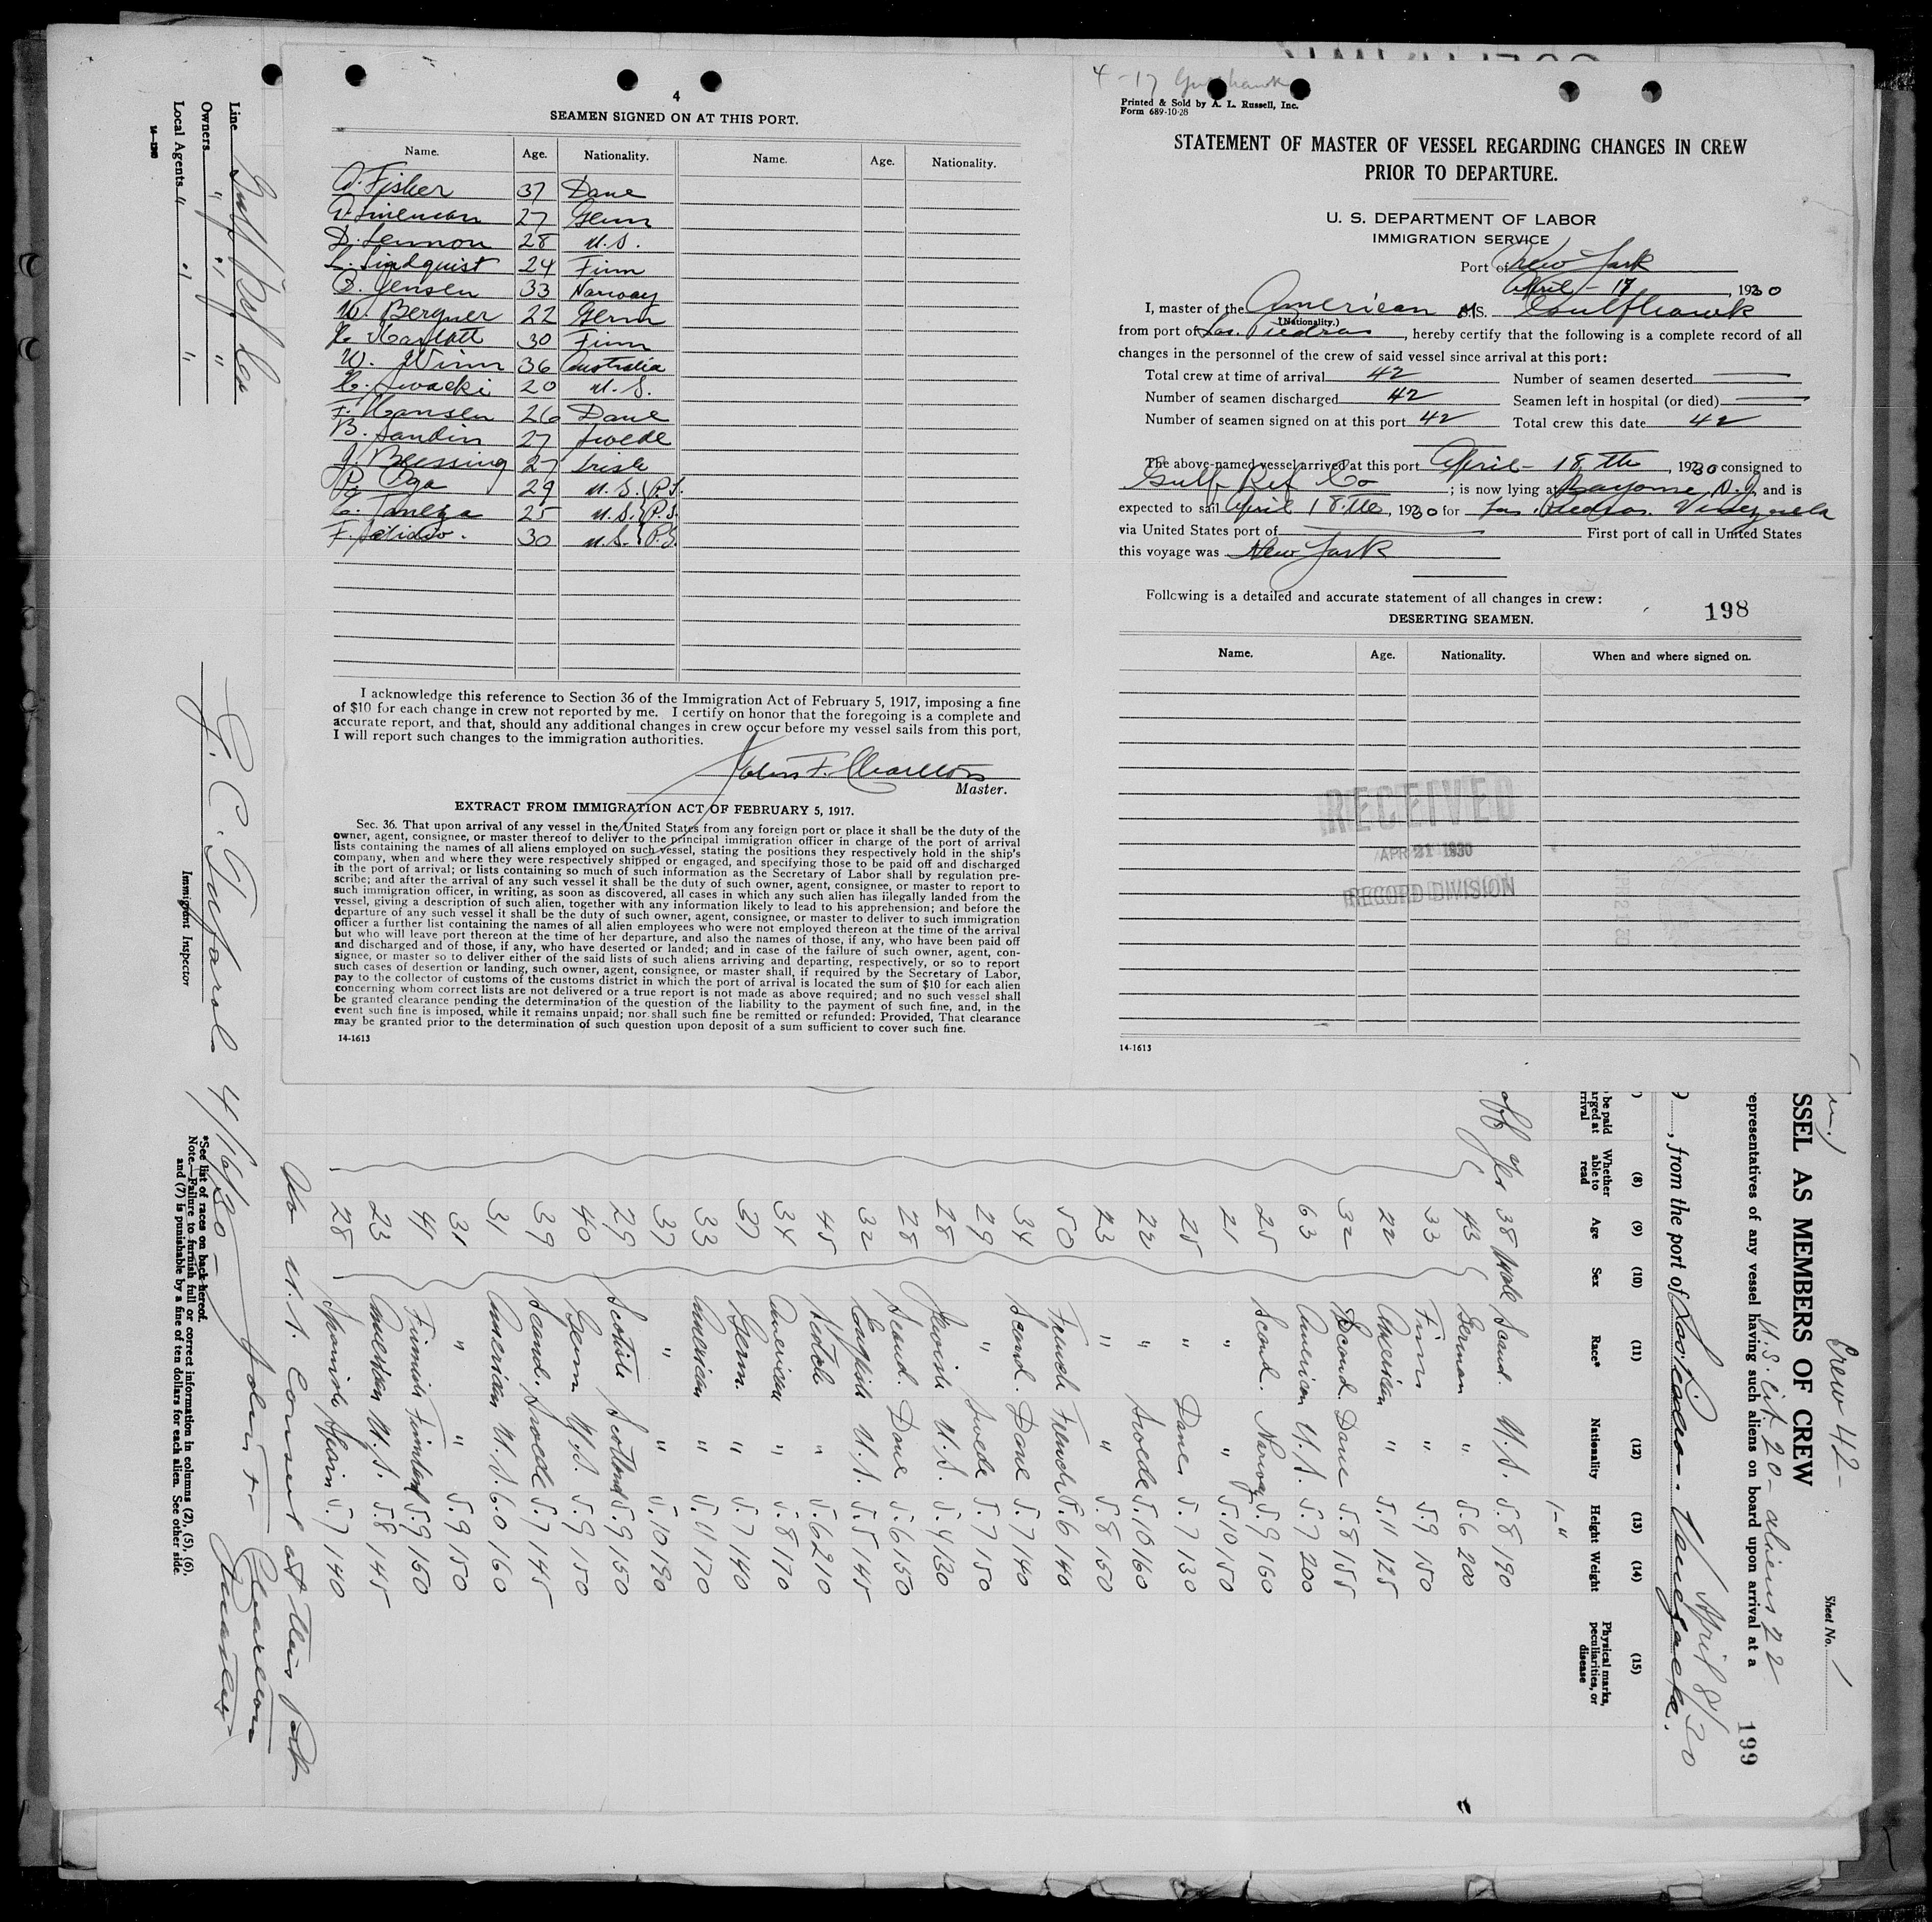 4
SEAMEN SIGNED ON AT THIS PORT.
Name. Age. Nationality. Name. Age. Nationality.
Fisher 37 Dane
27 Germ
D. Lennon 28 U.S.
L. Lindquist 24 Finn
Jensen 33 Norway
W. Bergner 22 Germ
30 Finn
W. Winn 36 Australia
20 U.S.
F. Hansen 26 Dane
B. Sandin 27 Swede
J. Blessing 27 Irish
P. 29 U.S. (P.I.
25 U.S. (P.I.
F. 30 U.S. (P.I.
I acknowledge this reference to Section 36 of the Immigration Act of February 5, 1917, imposing a fine
of $10 for each change in crew not reported by me. I certify on honor that the foregoing is a complete and
accurate report, and that, should any additional changes in crew occur before my vessel sails from this port,
I will report such changes to the immigration authorities.
John F. Charlton
Master.
EXTRACT FROM IMMIGRATION ACT OF FEBRUARY 5, 1917.
Sec. 36. That upon arrival of any vessel in the United States from any foreign port or place it shall be the duty of the
owner, agent, consignee, or master thereof to deliver to the principal immigration officer in charge of the port of arrival
lists containing the names of all aliens employed on such vessel, stating the positions they respectively hold in the ship's
company, when and where they were respectively shipped or engaged, and specifying those to be paid off and discharged
in the port of arrival; or lists containing so much of such information as the Secretary of Labor shall by regulation pre-
scribe; and after the arrival of any such vessel it shall be the duty of such owner, agent, consignee, or master to report to
such immigration officer, in writing, as soon as discovered, all cases in which any such alien has illegally landed from the
vessel, giving a description of such alien, together with any information likely to lead to his apprehension; and before the
departure of any such vessel it shall be the duty of such owner, agent, consignee, or master to deliver to such immigration
officer a further list containing the names of all alien employees who were not employed thereon at the time of the arrival
but who will leave port thereon at the time of her departure, and also the names of those, if any, who have been paid off
and discharged and of those, if any, who have deserted or landed; and in case of the failure of such owner, agent, con-
signee, or master so to deliver either of the said lists of such aliens arriving and departing, respectively, or so to report
such cases of desertion or landing, such owner, agent, consignee, or master shall, if required by the Secretary of Labor,
pay to the collector of customs of the customs district in which the port of arrival is located the sum of $10 for each alien
concerning whom correct lists are not delivered or a true report is not made as above required; and no such vessel shall
be granted clearance pending the determination of the question of the liability to the payment of such fine, and, in the
event such fine is imposed, while it remains unpaid; nor shall such fine be remitted or refunded: Provided, That clearance
may be granted prior to the determination of such question upon deposit of a sum sufficient to cover such fine.
14-1613
4-17 Gulfhawk
Printed & Sold by A. L. Russell, Inc.
Form 689-10-28
STATEMENT OF MASTER OF VESSEL REGARDING CHANGES IN CREW
PRIOR TO DEPARTURE.
U. S. DEPARTMENT OF LABOR
IMMIGRATION SERVICE
Port of New York
April - 17, 1930
I, master of the American M.S. Gulfhawk
(Nationality.)
from port of Las Piedras, hereby certify that the following is a complete record of all
changes in the personnel of the crew of said vessel since arrival at this port:
Total crew at time of arrival 42 Number of seamen deserted
Number of seamen discharged 42 Seamen left in hospital (or died)
Number of seamen signed on at this port 42 Total crew this date 42
The above-named vessel arrived at this port April - 18th, 1930 consigned to
Gulf Ref Co; is now lying at Bayonne, N.J. and is
expected to sail April 18th, 1930 for Las Piedras. Venezuela
via United States port of First port of call in United States
this voyage was New York
Following is a detailed and accurate statement of all changes in crew:
198
DESERTING SEAMEN.
Name. Age. Nationality. When and where signed on.
RECEIVED
APR 21 1930
RECORD DIVISION
14-1613
Line Gulf Ref Co
Owners " " "
Local Agents " " "
14-1240
Immigrant Inspector
4/16/30
John F. Charlton
Master
*See list of races on back hereof.
Note.—Failure to furnish full or correct information in columns (2), (5), (6),
and (7) is punishable by a fine of ten dollars for each alien. See other side.
Crew 42-
Sheet No. 1
SSEL AS MEMBERS OF CREW
U.S. Cit. 20 - aliens 22
199
epresentatives of any vessel having such aliens on board upon arrival at a
April 8/30
, from the port of Las Piedras. Venezuela.
(8) (9) (10) (11) (12) (13) (14) (15)
be paid
arged at
rrival
Whether able to read Age Sex Race* Nationality Height Weight Physical marks, peculiarities, or disease
off yes 38 Male Scand. U.S. 5.8 190
43 German " 5.6 200
33 Finn " 5.9 150
22 American " 5.11 125
32 Scand. Dane 5.8 155
63 American U.S. 5.7 200
25 Scand. Norway 5.9 160
21 " " 5.10 150
25 " Dane 5.7 130
22 " Swede 5.10 160
23 " " 5.8 150
50 French French 5.6 140
34 Scand. Dane 5.7 140
29 " Swede 5.7 150
28 Jewish U.S. 5.4 130
28 Scand. Dane 5.6 150
32 English U.S. 5.5 145
45 Scotch " 5.6 210
34 American " 5.8 170
37 Germ. " 5.7 140
33 American " 5.11 170
37 " " 5.10 190
29 Scotish Scotland 5.9 150
40 Germ U.S. 5.9 150
39 Scand. Swede 5.7 145
31 American U.S. 6.0 160
31 " " 5.9 150
41 Finnish Finnland 5.9 150
23 American U.S. 5.8 145
28 Spanish Spain 5.7 140
No U.S. Consul at this Port